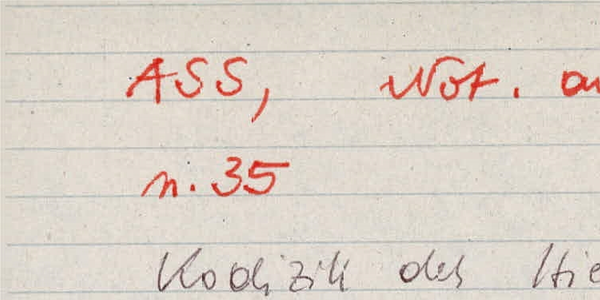 ASS, Not. an
n. 35
Kodizill des Hie